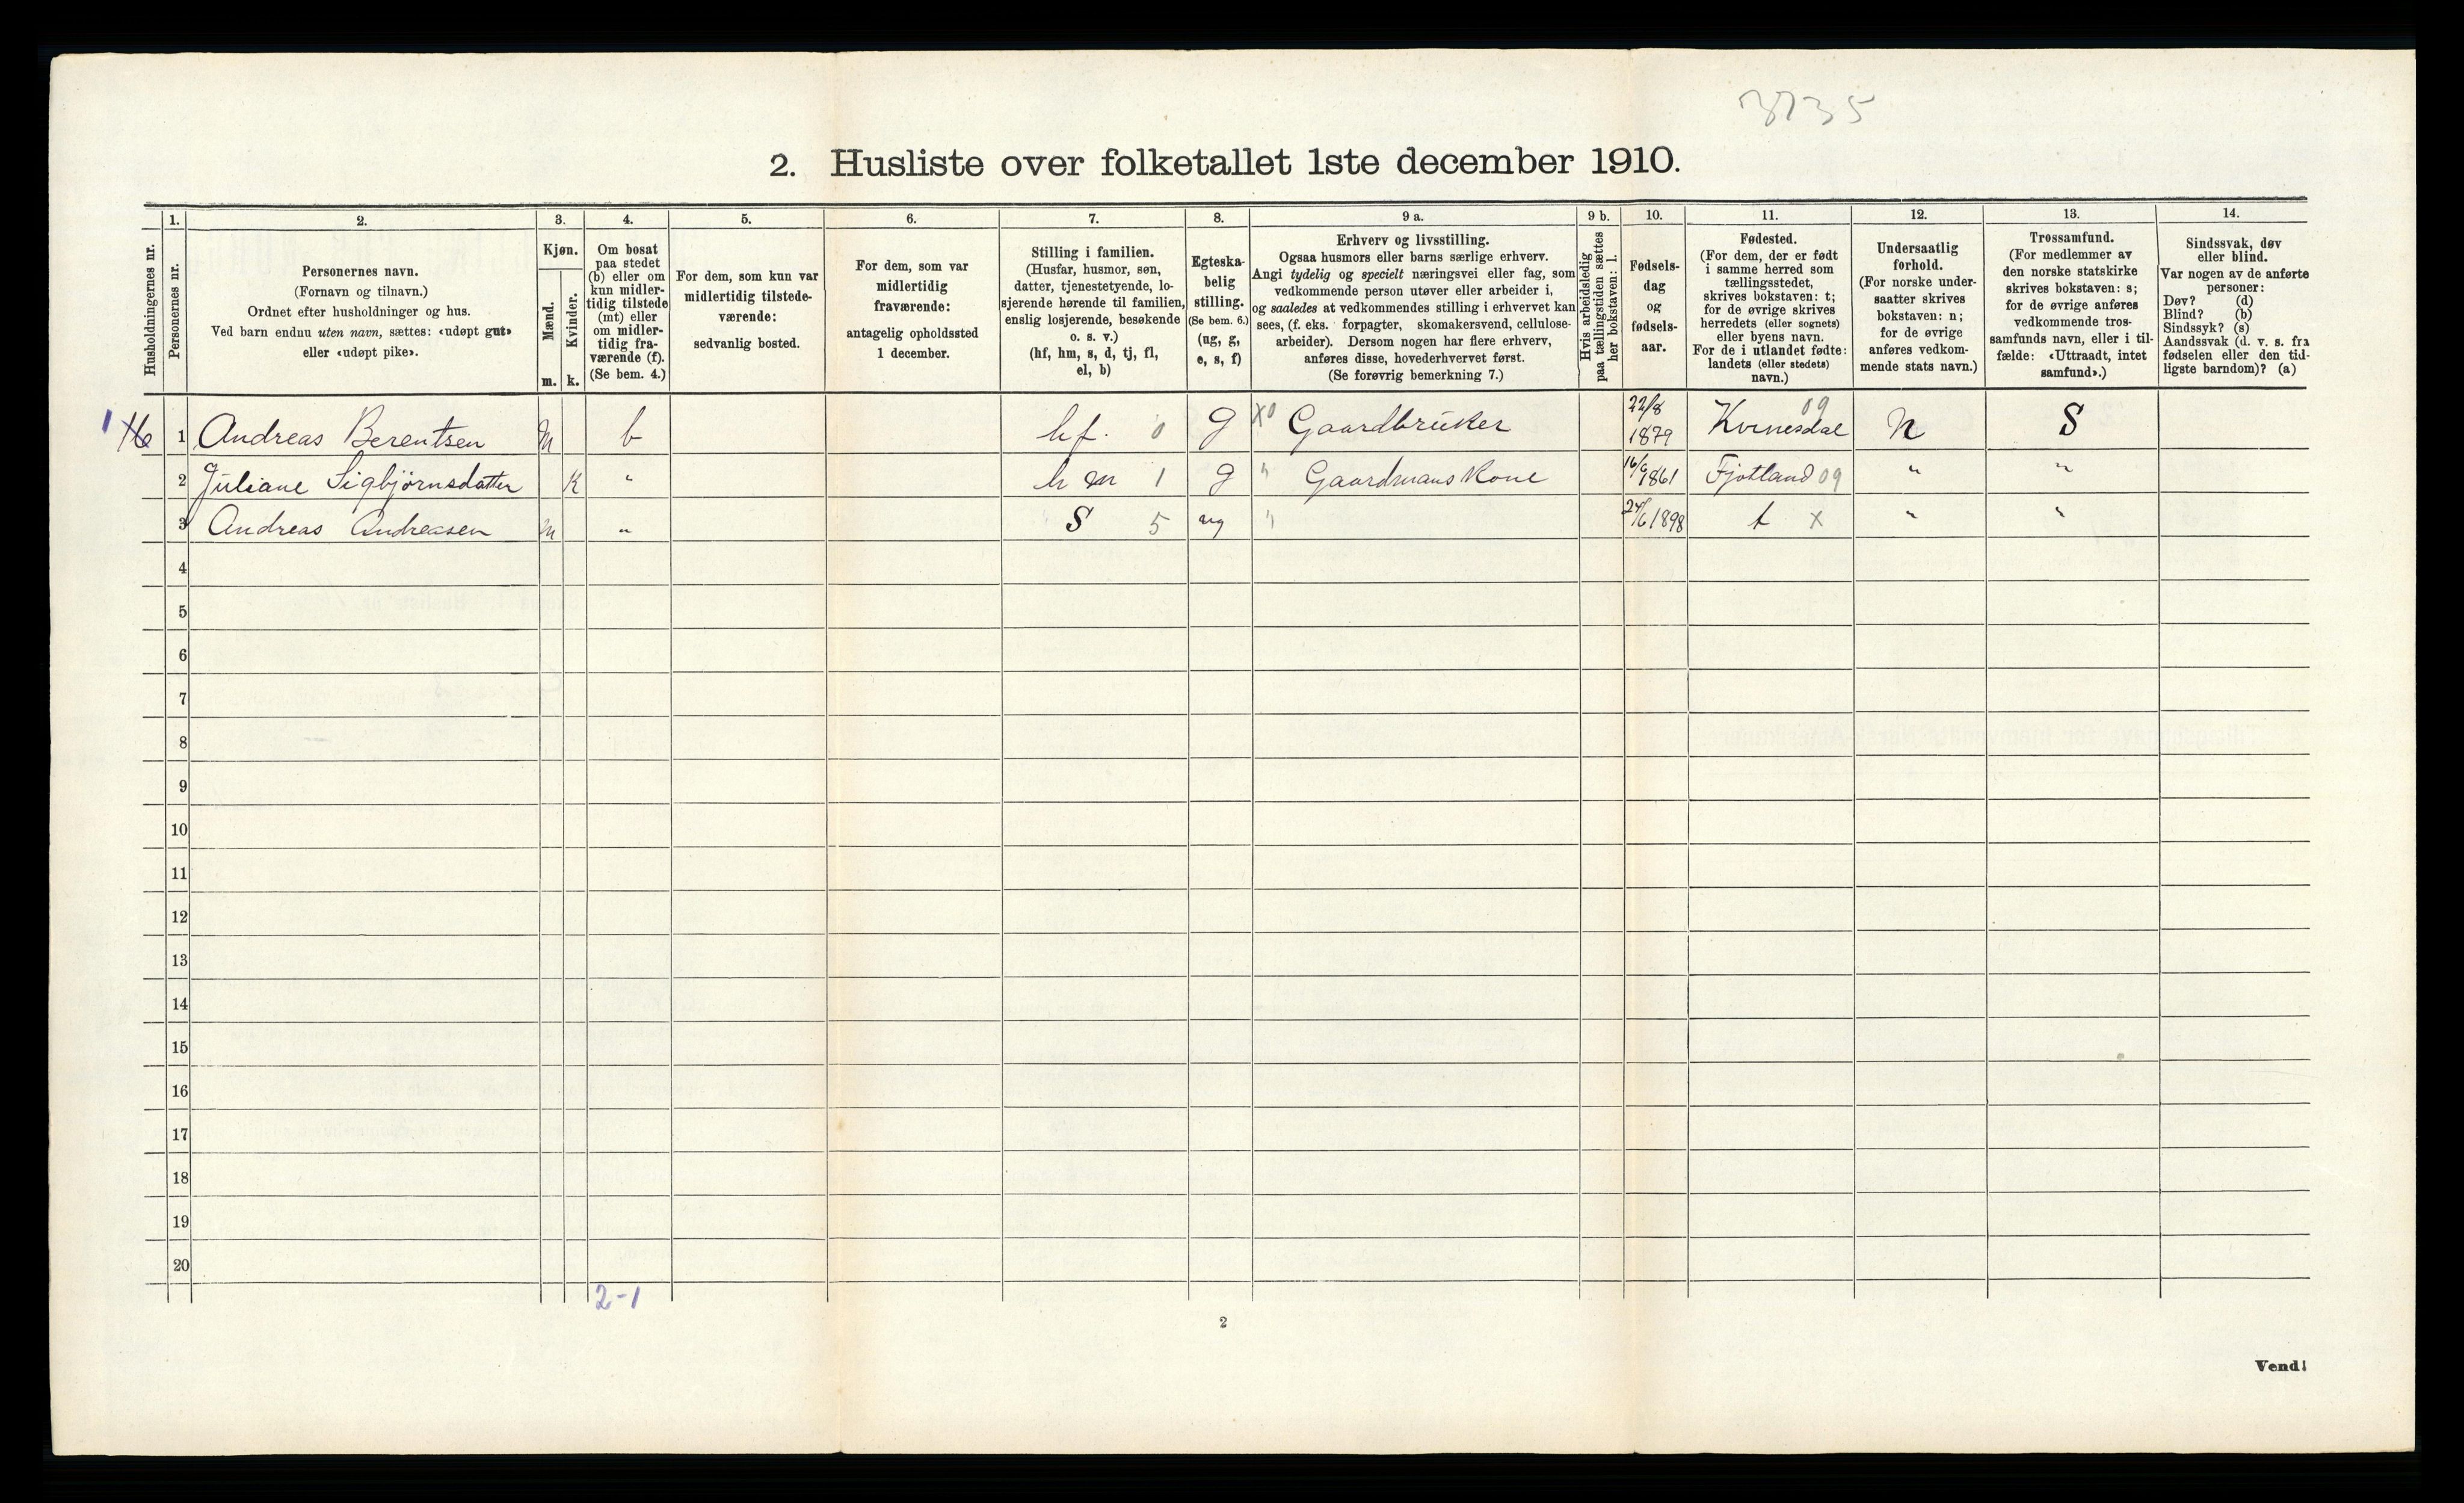 3735
2. Husliste over folketallet 1ste december 1910.
Husholdningernes nr.
1.
Personernes nr.
2.
Personernes navn.
(Fornavn og tilnavn.)
Ordnet efter husholdninger og hus.
Ved barn endnu uten navn, sættes: «udøpt gut»
eller «udøpt pike».
3.
Kjøn.
Mænd.
Kvinder.
m. k.
4.
Om bosat
paa stedet
(b) eller om
kun midler-
tidig tilstede
(mt) eller
om midler-
tidig fra-
værende (f).
(Se bem. 4.)
5.
For dem, som kun var
midlertidig tilstede-
værende:
sedvanlig bosted.
6.
For dem, som var
midlertidig
fraværende:
antagelig opholdssted
1 december.
7.
Stilling i familien.
(Husfar, husmor, søn,
datter, tjenestetyende, lo-
sjerende hørende til familien,
enslig losjerende, besøkende
o. s. v.)
(hf, hm, s, d, tj, fl,
el, b)
8.
Egteska-
belig
stilling.
(Se bem. 6.)
(ug, g,
e, s, f)
9 a.
Erhverv og livsstilling.
Ogsaa husmors eller barns særlige erhverv.
Angi tydelig og specielt næringsvei eller fag, som
vedkommende person utøver eller arbeider i,
og saaledes at vedkommendes stilling i erhvervet kan
sees, (f. eks. forpagter, skomakersvend, cellulose-
arbeider). Dersom nogen har flere erhverv,
anføres disse, hovederhvervet først.
(Se forøvrig bemerkning 7.)
9 b.
Hvis arbeidsledig
paa tællingstiden sættes
her bokstaven: l.
10.
Fødsels-
dag
og
fødsels-
aar.
11.
Fødested.
(For dem, der er født
i samme herred som
tællingsstedet,
skrives bokstaven: t;
for de øvrige skrives
herredets (eller sognets)
eller byens navn.
For de i utlandet fødte:
landets (eller stedets)
navn.)
12.
Undersaatlig
forhold.
(For norske under-
saatter skrives
bokstaven: n;
for de øvrige
anføres vedkom-
mende stats navn.)
13.
Trossamfund.
(For medlemmer av
den norske statskirke
skrives bokstaven: s;
for de øvrige anføres
vedkommende tros-
samfunds navn, eller i til-
fælde: «Uttraadt, intet
samfund».)
14.
Sindssvak, døv
eller blind.
Var nogen av de anførte
personer:
Døv? (d)
Blind? (b)
Sindssyk? (s)
Aandssvak (d. v. s. fra
fødselen eller den tid-
ligste barndom)? (a)
1 1 Andreas Berentsen m b hf. 0 g X0 Gaardbruker 22/8 1879 Kvinesdal 09 n S
2 Juliane Sigbjørnsdatter K " hm 1 g " Gaardmans Kone 16/9 1861 Fjotland 09 " "
3 Andreas Andreasen m " S 5 ug " 24/6 1898 t X " "
4
5
6
7
8
9
10
11
12
13
14
15
16
17
18
19
20
2-1
2
Vend!